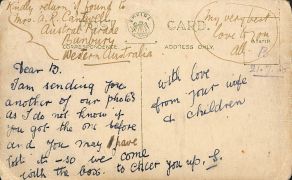 Kindly return if found to
Mrs. A. R. Cantwell
Austral Parade
Bunbury
Western Australia
EMPIRE
POST CARD.
CORRESPONDENCE
ADDRESS ONLY.
My very best
love to you
all
Dear B.
I am sending you
another of our photos
as I do not know if
you got the one before
and you may have
lost it - so we come
with the boxs. to cheer you up.
with love
from your wife
& children